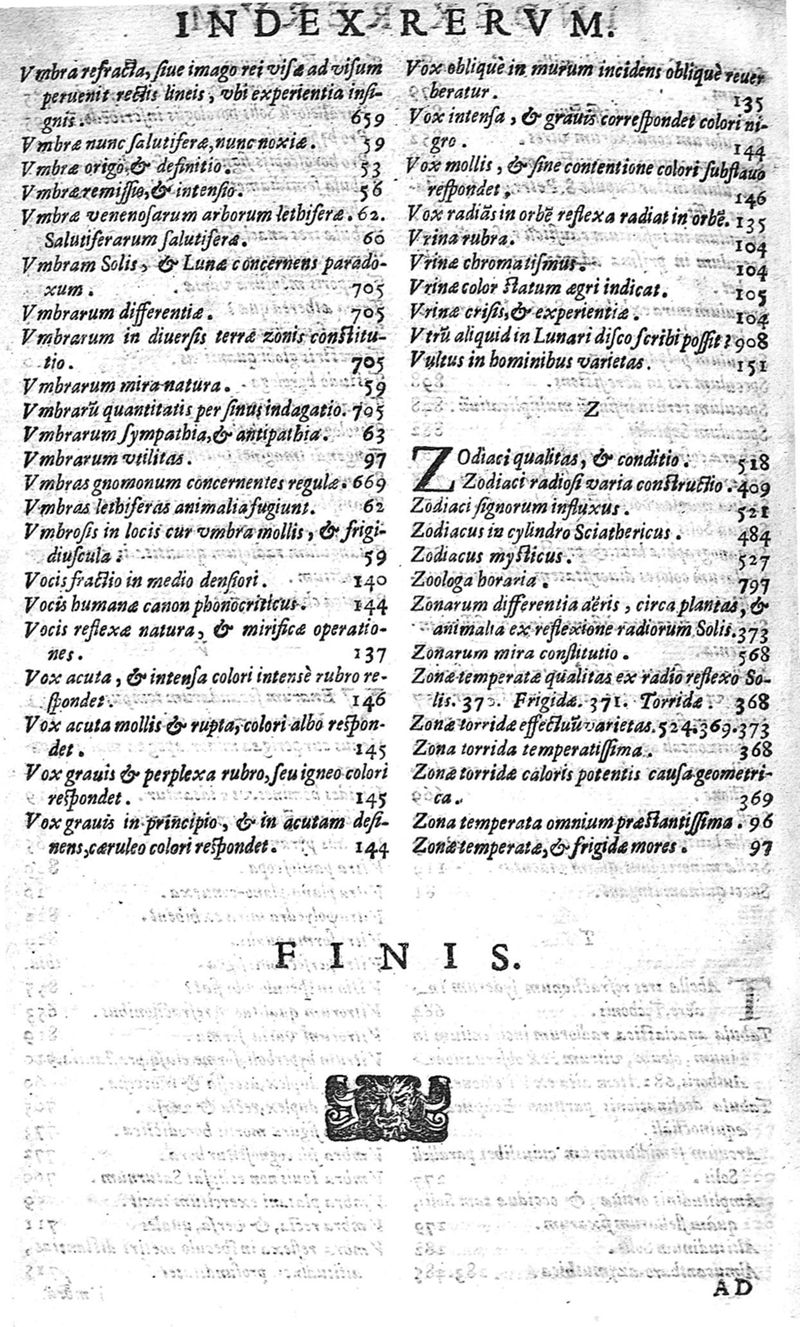 INDEX RERVM.
Vmbra refracta, siue imago rei visæ ad visum
peruenit rectis lineis, vbi experientia insi-
gnis. 659
Vmbræ nunc salutiferæ, nunc noxiæ. 59
Vmbræ origo, & definitio. 53
Vmbræ remissio, & intensio. 56
Vmbræ venenosarum arborum lethiferæ. 62.
Salutiferarum salutiferæ. 60
Vmbram Solis, & Lunæ concernens parado-
xum. 705
Vmbrarum differentiæ. 705
Vmbrarum in diuersis terræ zonis constitu-
tio. 705
Vmbrarum mira natura. 59
Vmbrarū quantitatis per sinus indagatio. 705
Vmbrarum sympathia, & antipathia. 63
Vmbrarum vtilitas. 97
Vmbras gnomonum concernentes regulæ. 669
Vmbras lethiferas animalia fugiunt. 62
Vmbrosis in locis cur vmbra mollis, & frigi-
diuscula: 59
Vocis fractio in medio densiori. 140
Vocis humanæ canon phonocriticus. 144
Vocis reflexæ natura, & mirificæ operatio-
nes. 137
Vox acuta, & intensa colori intensè rubro re-
spondet. 146
Vox acuta mollis & rupta, colori albo respon-
det. 145
Vox grauis & perplexa rubro, seu igneo colori
respondet. 145
Vox grauis in principio, & in acutam desi-
nens, cæruleo colori respondet. 144
Vox obliquè in murum incidens obliquè reuer
beratur. 135
Vox intensa, & grauis correspondet colori ni-
gro. 144
Vox mollis, & sine contentione colori subflauo
respondet, 146
Vox radiās in orbē reflexa radiat in orbē. 135
Vrina rubra. 104
Vrinæ chromatismus. 104
Vrinæ color statum ægri indicat. 105
Vrinæ crisis, & experientiæ. 104
Vtrū aliquid in Lunari disco scribi possit? 908
Vultus in hominibus varietas. 151
Z
ZOdiaci qualitas, & conditio. 518
Zodiaci radiosi varia constructio. 409
Zodiaci signorum influxus. 521
Zodiacus in cylindro Sciathericus. 484
Zodiacus mysticus. 527
Zoologa horaria. 797
Zonarum differentia aëris, circa plantas, &
animalia ex reflexione radiorum Solis. 373
Zonarum mira constitutio. 568
Zonæ temperatæ qualitas ex radio reflexo So-
lis. 370. Frigidæ. 371. Torridæ. 368
Zonæ torridæ effectuū varietas. 524. 369. 373
Zona torrida temperatissima. 368
Zonæ torridæ caloris potentis causa geometri-
ca. 369
Zona temperata omnium præstantissima. 96
Zonæ temperatæ, & frigidæ mores. 97
FINIS.
AD